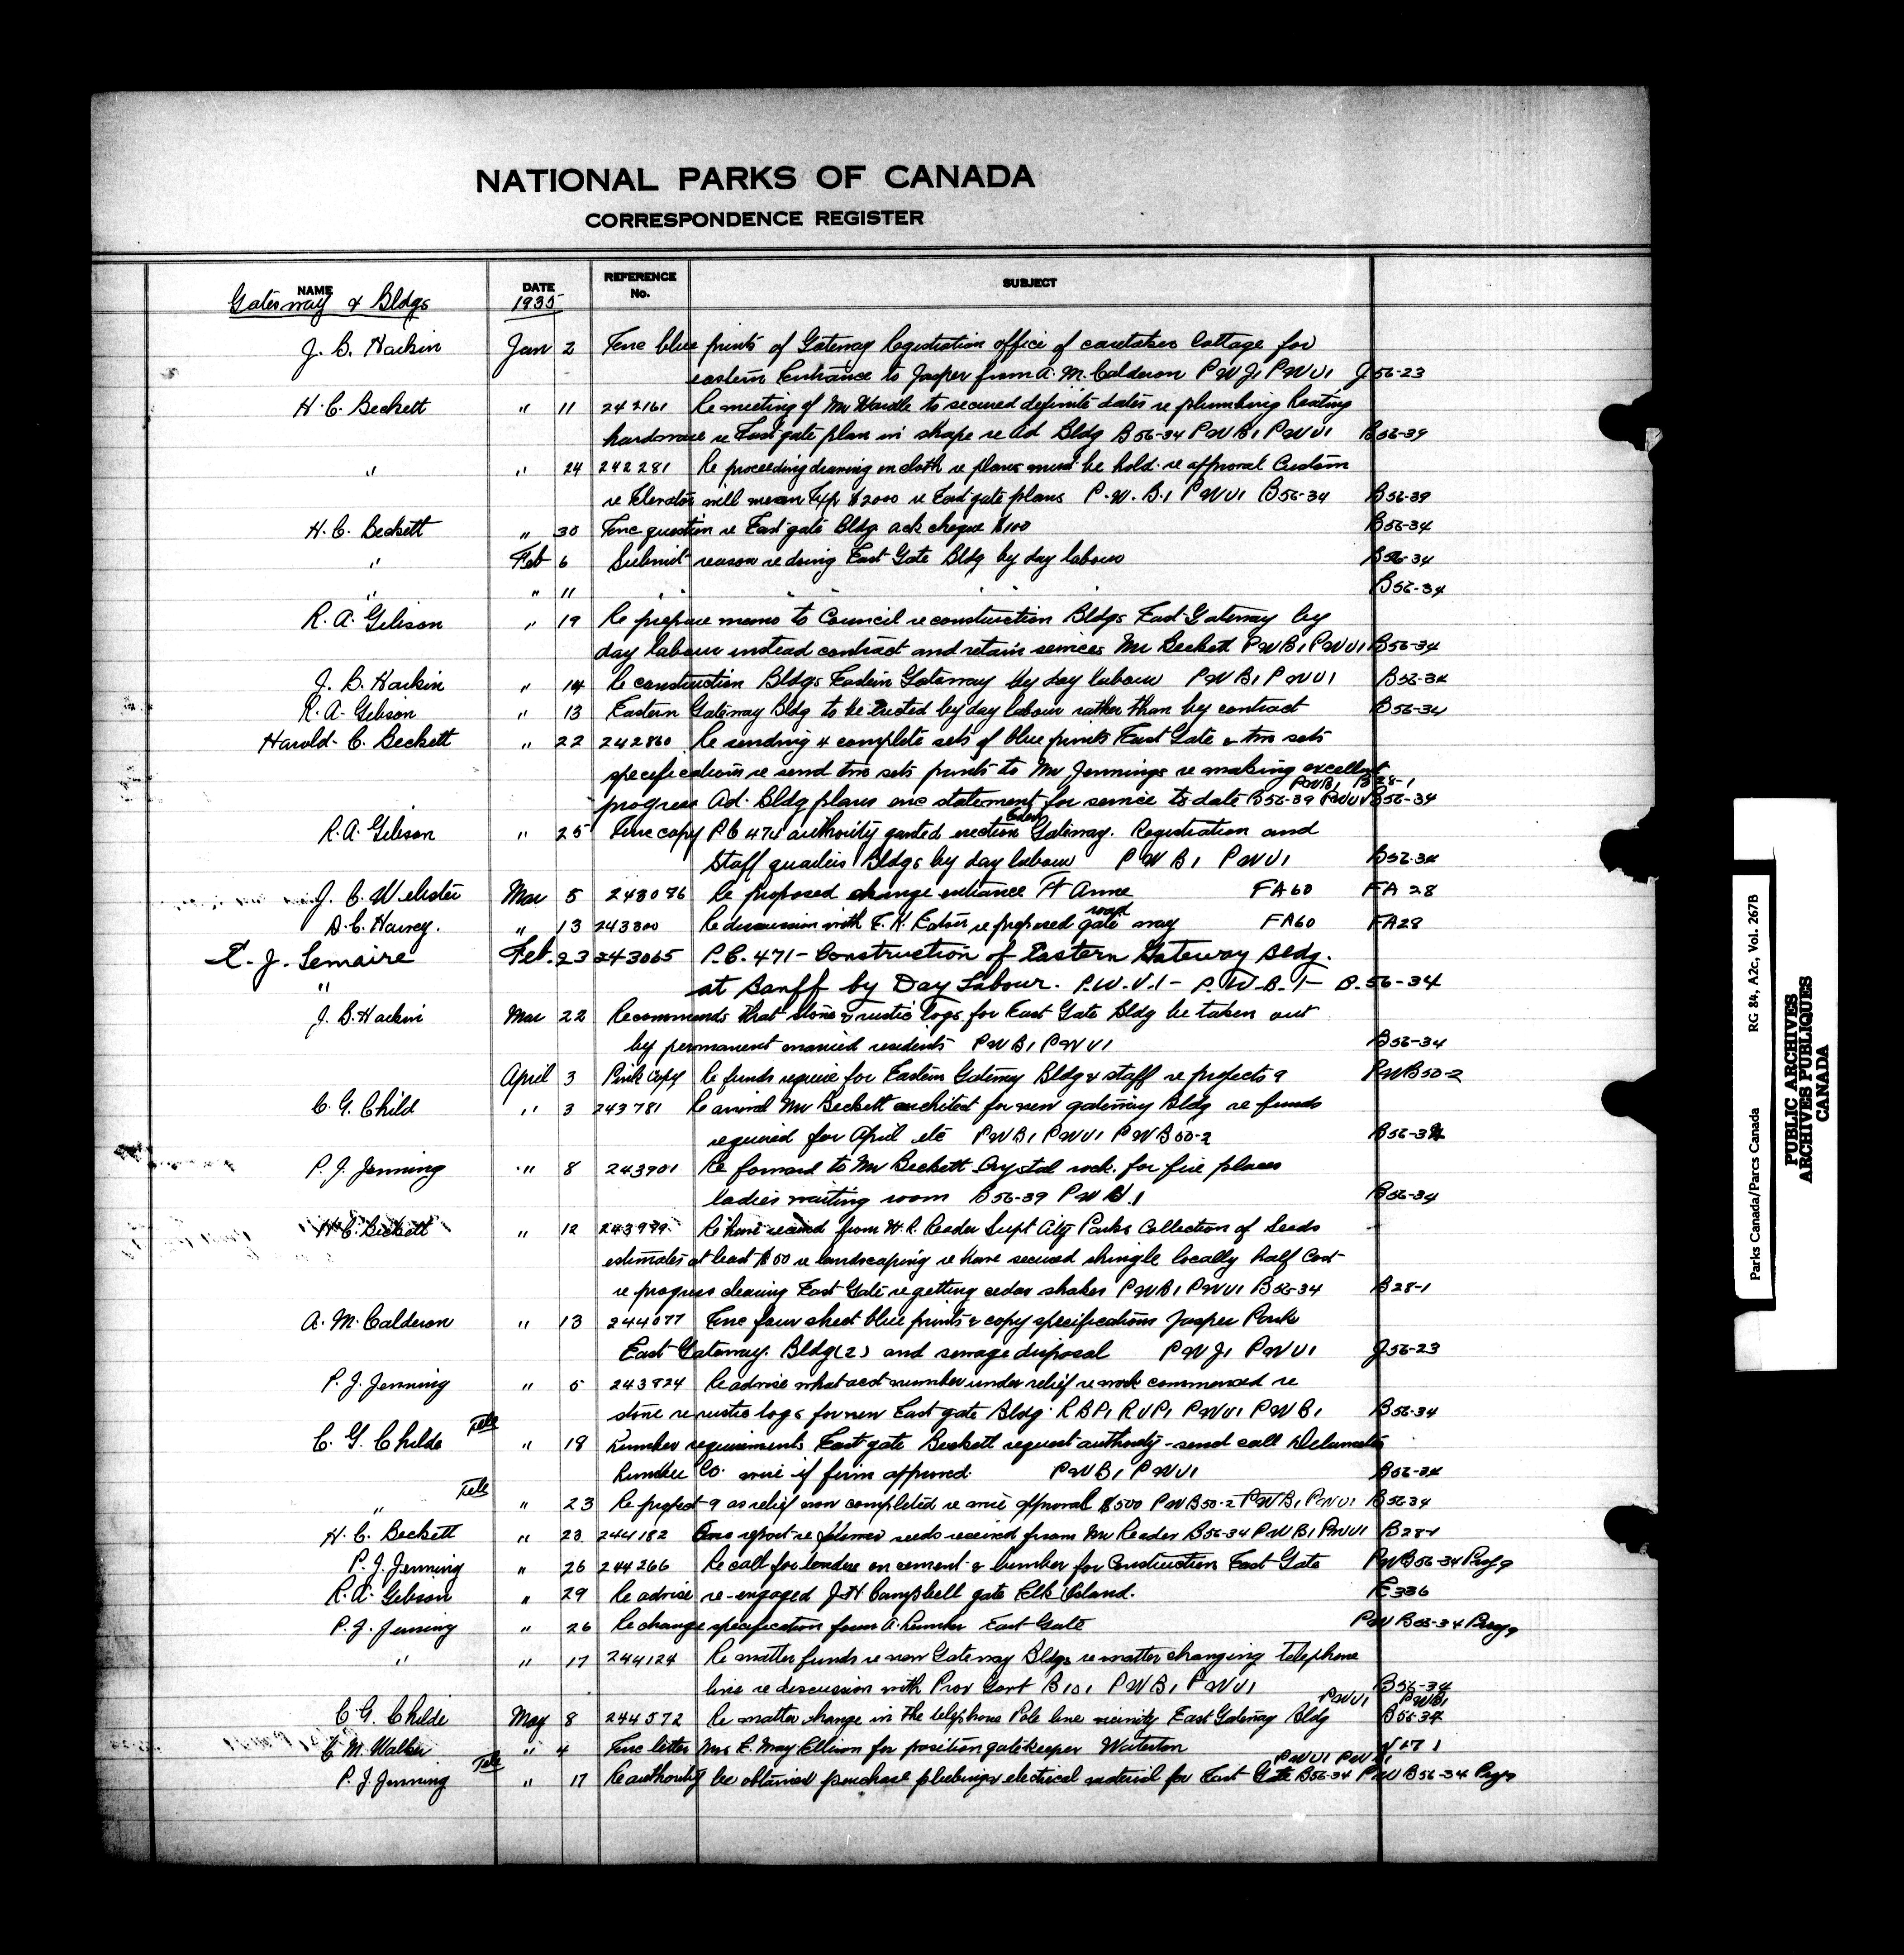 NATIONAL PARKS OF CANADA
CORRESPONDENCE REGISTER
NAME DATE REFERENCE No. SUBJECT
Gateway & Bldgs 1935
J. B. Harkin Jan 2 Enc blue prints of Gateway Registration office of caretaker Cottage for
eastern Entrance to Jasper from A. M. Calderon PWJ1 PWU1 J56-23
H. C. Beckett " 11 242161 Re meeting of Mr Wardle to secured definite dates re plumbing heating
hardware re East gate plan in shape re Ad Bldg B56-34 PWB1 PWU1 B56-39
" " 24 242281 Re proceeding drawing on cloth re plans must be hold re approval Custom
re Elevator will mean Exp $2000 re East gate plans P.W.B.1 PWU1 B56-34 B56-39
H. C. Beckett " 30 Enc question re East gate Bldg ack cheque $100 B56-34
" Feb 6 Submit reason re doing East Gate Bldg by day labour B56-34
" " 11 " " " B56-34
R. A. Gibson " 19 Re prepare memo to Council re construction Bldgs East Gateway by
day labour instead contract and retain services Mr Beckett PWB1 PWU1 B56-34
J. B. Harkin " 14 Re construction Bldgs Eastern Gateway by day labour PWB1 PWU1 B56-34
R. A. Gibson " 13 Eastern Gateway Bldg to be Erected by day labour rather than by contract B56-34
Harold C. Beckett " 22 242860 Re sending 4 complete sets of blue prints East Gate & two sets
specifications re send two sets prints to Mr Jennings re making excellent
PWB1 B28-1
progress Ad. Bldg plans enc statement for service to date B56-39 PWU1 B56-34
R. A. Gibson " 25 Enc copy PC 471 authority granted erection Eastern Gateway. Registration and
Staff quarters Bldgs by day labour PWB1 PWU1 B56-34
J. C. Webster Mar 5 243076 Re proposed change entrance Ft Anne FA60 FA 28
D. C. Harvey. " 13 243300 Re discussion with F. H. Eaton re proposed road gate way FA60 FA28
E. J. Lemaire Feb. 23 243065 P.C. 471 - Construction of Eastern Gateway Bldg.
" at Banff by Day Labour. P.W.U.1 - P.W.B.1 - B.56-34
J. B. Harkin Mar 22 Recommends that stone & rustic logs for East Gate Bldg be taken out
by permanent married residents PWB1 PWU1 B56-34
April 3 Pink Copy Re funds require for Eastern Gateway Bldg & staff re projects 9 PWB50-2
C. G. Child " 3 243781 Re arrival Mr Beckett architect for new gateway Bldg re funds
required for April etc PWB1 PWU1 PWB50-2 B56-34
P. J. Jenning " 8 243901 Re forward to Mr Beckett Crystal rock for fire places
ladies waiting room B56-39 PWB.1 B56-34
H. C. Beckett " 12 243979 Re have received from W. R. Reader Supt Calg Parks Collection of Seeds
estimates at least $50 re landscaping re have secured shingle locally half Cost
re progress clearing East Gate re getting cedar shakes PWB1 PWU1 B56-34 B28-1
A. M. Calderon " 13 244077 Enc four sheet blue prints & copy specifications Jasper Park
East Gateway. Bldg (2) and sewage disposal PWJ1 PWU1 J56-23
P. J. Jenning " 5 243924 Re advise what acct number under relief re work commenced re
stone re rustic logs for new East gate Bldg. RBP1 RUP1 PWU1 PWB1 B56-34
C. G. Childe Tele " 18 Lumber requirements East gate Beckett request authority - send call
Lumber Co. wire if firm approved. PWB1 PWU1 B56-34
" Tele " 23 Re project 9 as relief now completed re wire approval $500 PWB50-2 PWB1 PWU1 B56-34
H. C. Beckett " 23 244182 Enc report re flower seeds received from Mr Reader B56-34 PWB1 PWU1 B28-1
P. J. Jenning " 26 244266 Re call for tenders on cement & lumber for Construction East Gate PWB56-34 Proj 9
R. A. Gibson " 29 Re advise re-engaged J. H. Campbell gate Elk Island. E336
P. J. Jenning " 26 Re change specification from A. Lumber East Gate PWB56-34 Proj 9
" " 17 244124 Re matter funds re new Gateway Bldgs re matter changing telephone
line re discussion with Prov Govt B101 PWB1 PWU1 B56-34
PWU1 PWB1
C. G. Childe May 8 244572 Re matter change in the telephone Pole line vicinity East Gateway Bldg B56-34
C. M. Walker " 4 Enc letter Mrs E. May Ellison for position gatekeeper Waterton W171
PWU1 PWB1
P. J. Jenning Tele " 17 Re authority be obtained purchase plumbing & electrical material for East Gate B56-34 PWB56-34 Proj 9
Parks Canada/Parcs Canada RG 84, A2c, Vol. 267B
PUBLIC ARCHIVES
ARCHIVES PUBLIQUES
CANADA